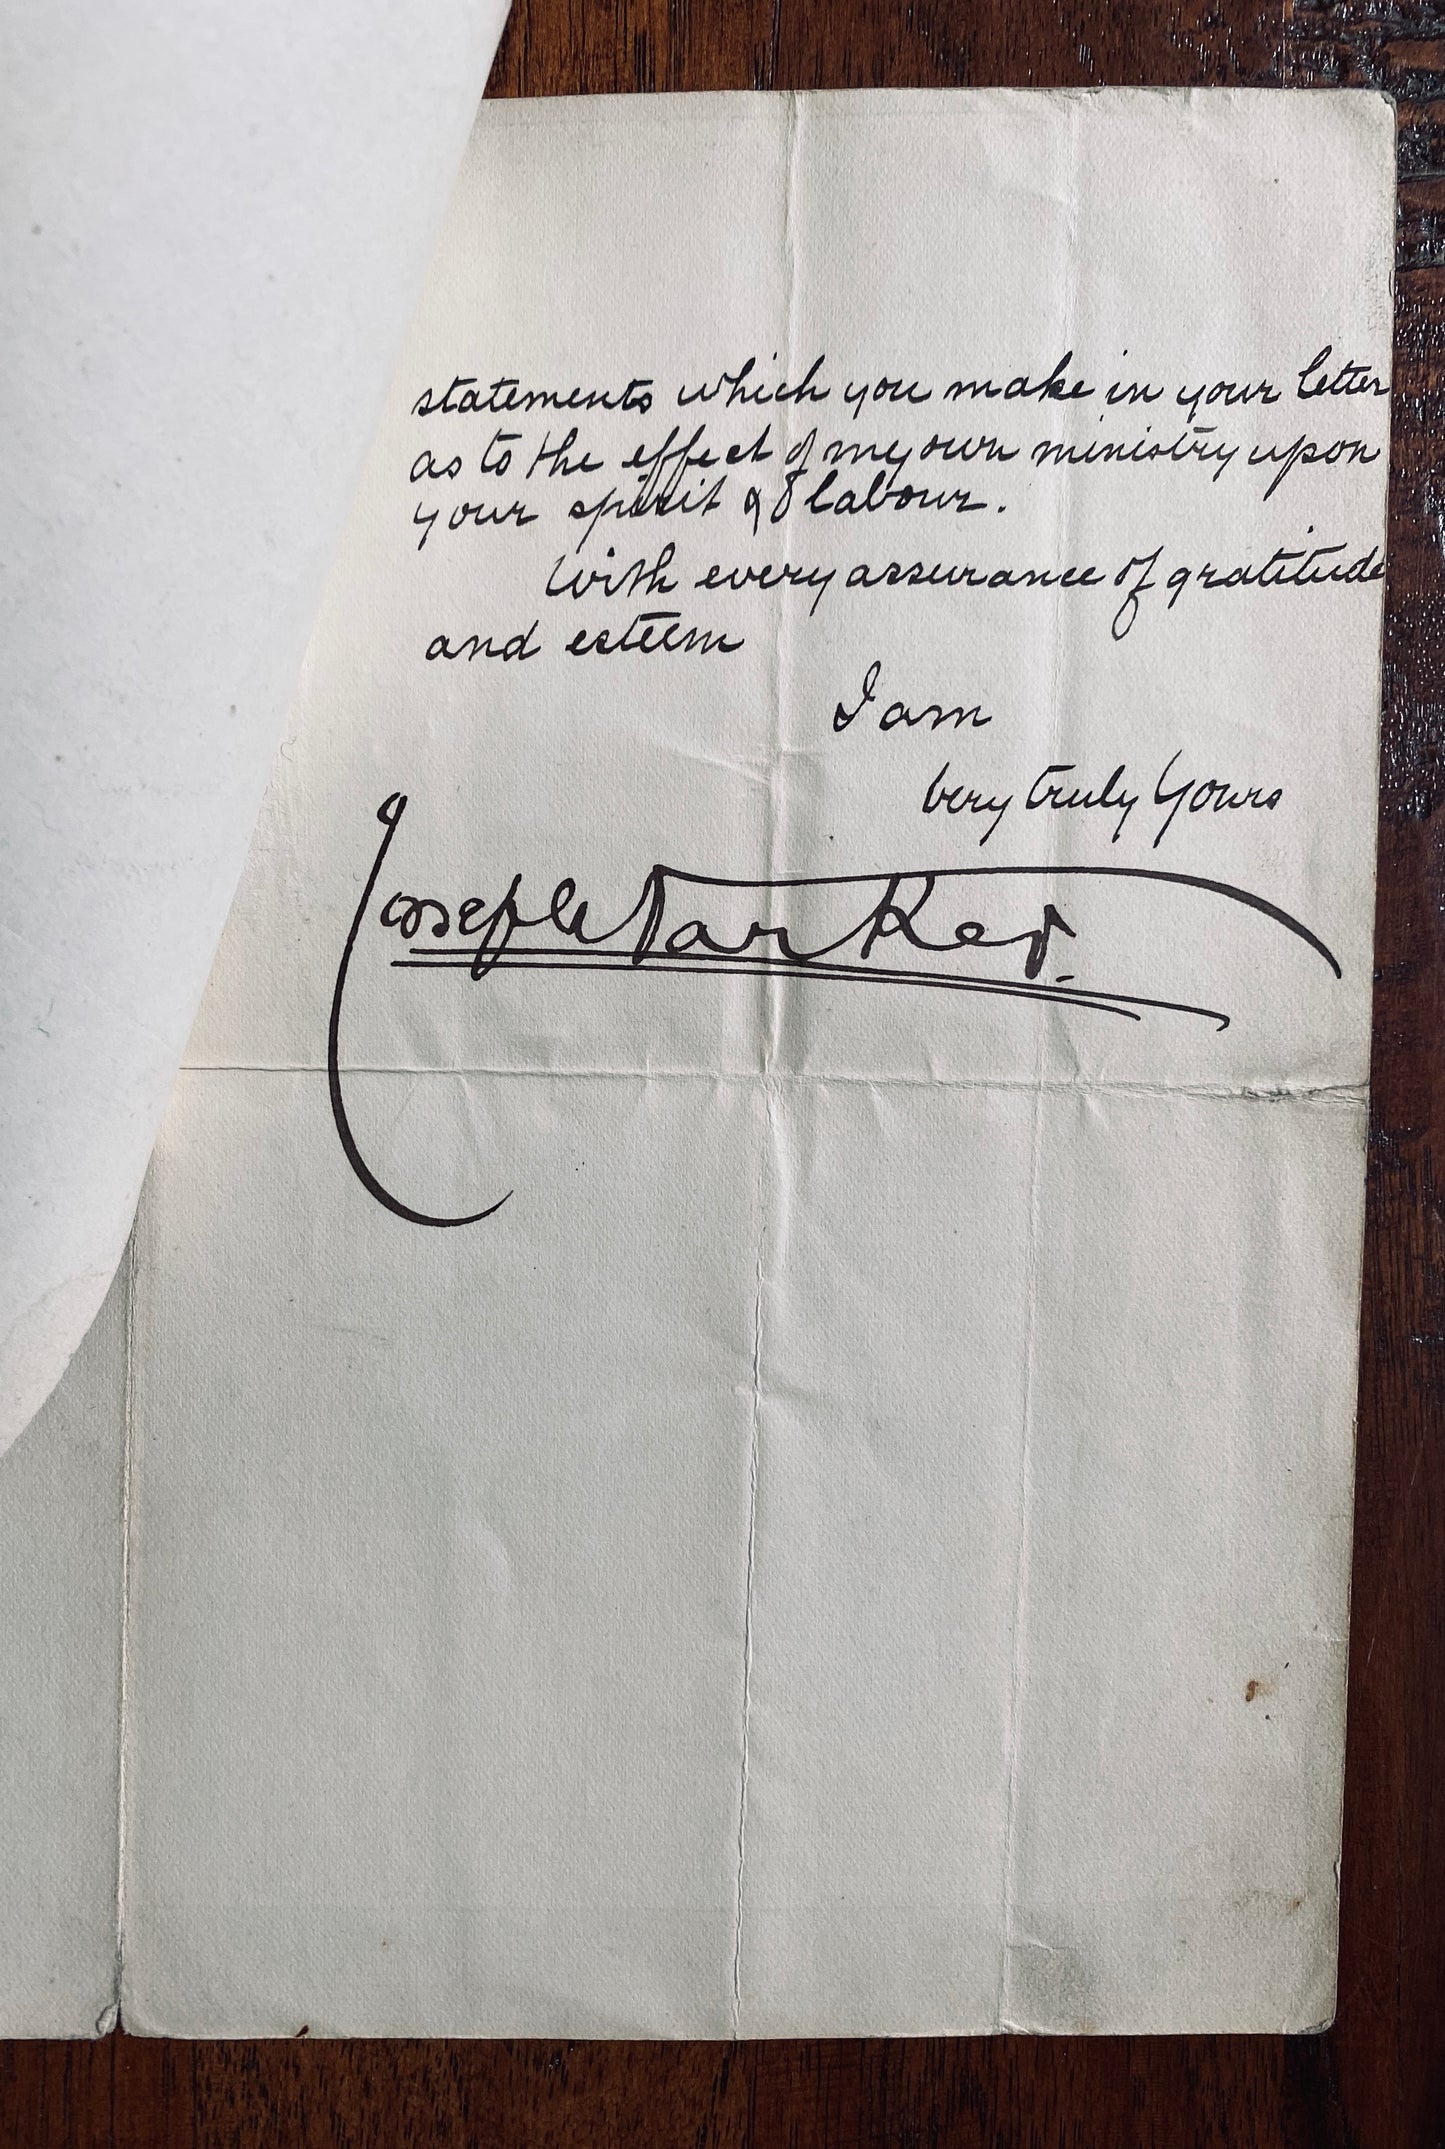 statements which you make in your letter
as to the effect of my own ministry upon
your spirit & labour.
With every assurance of gratitude
and esteem
I am
Very truly Yours
Joseph Parker.